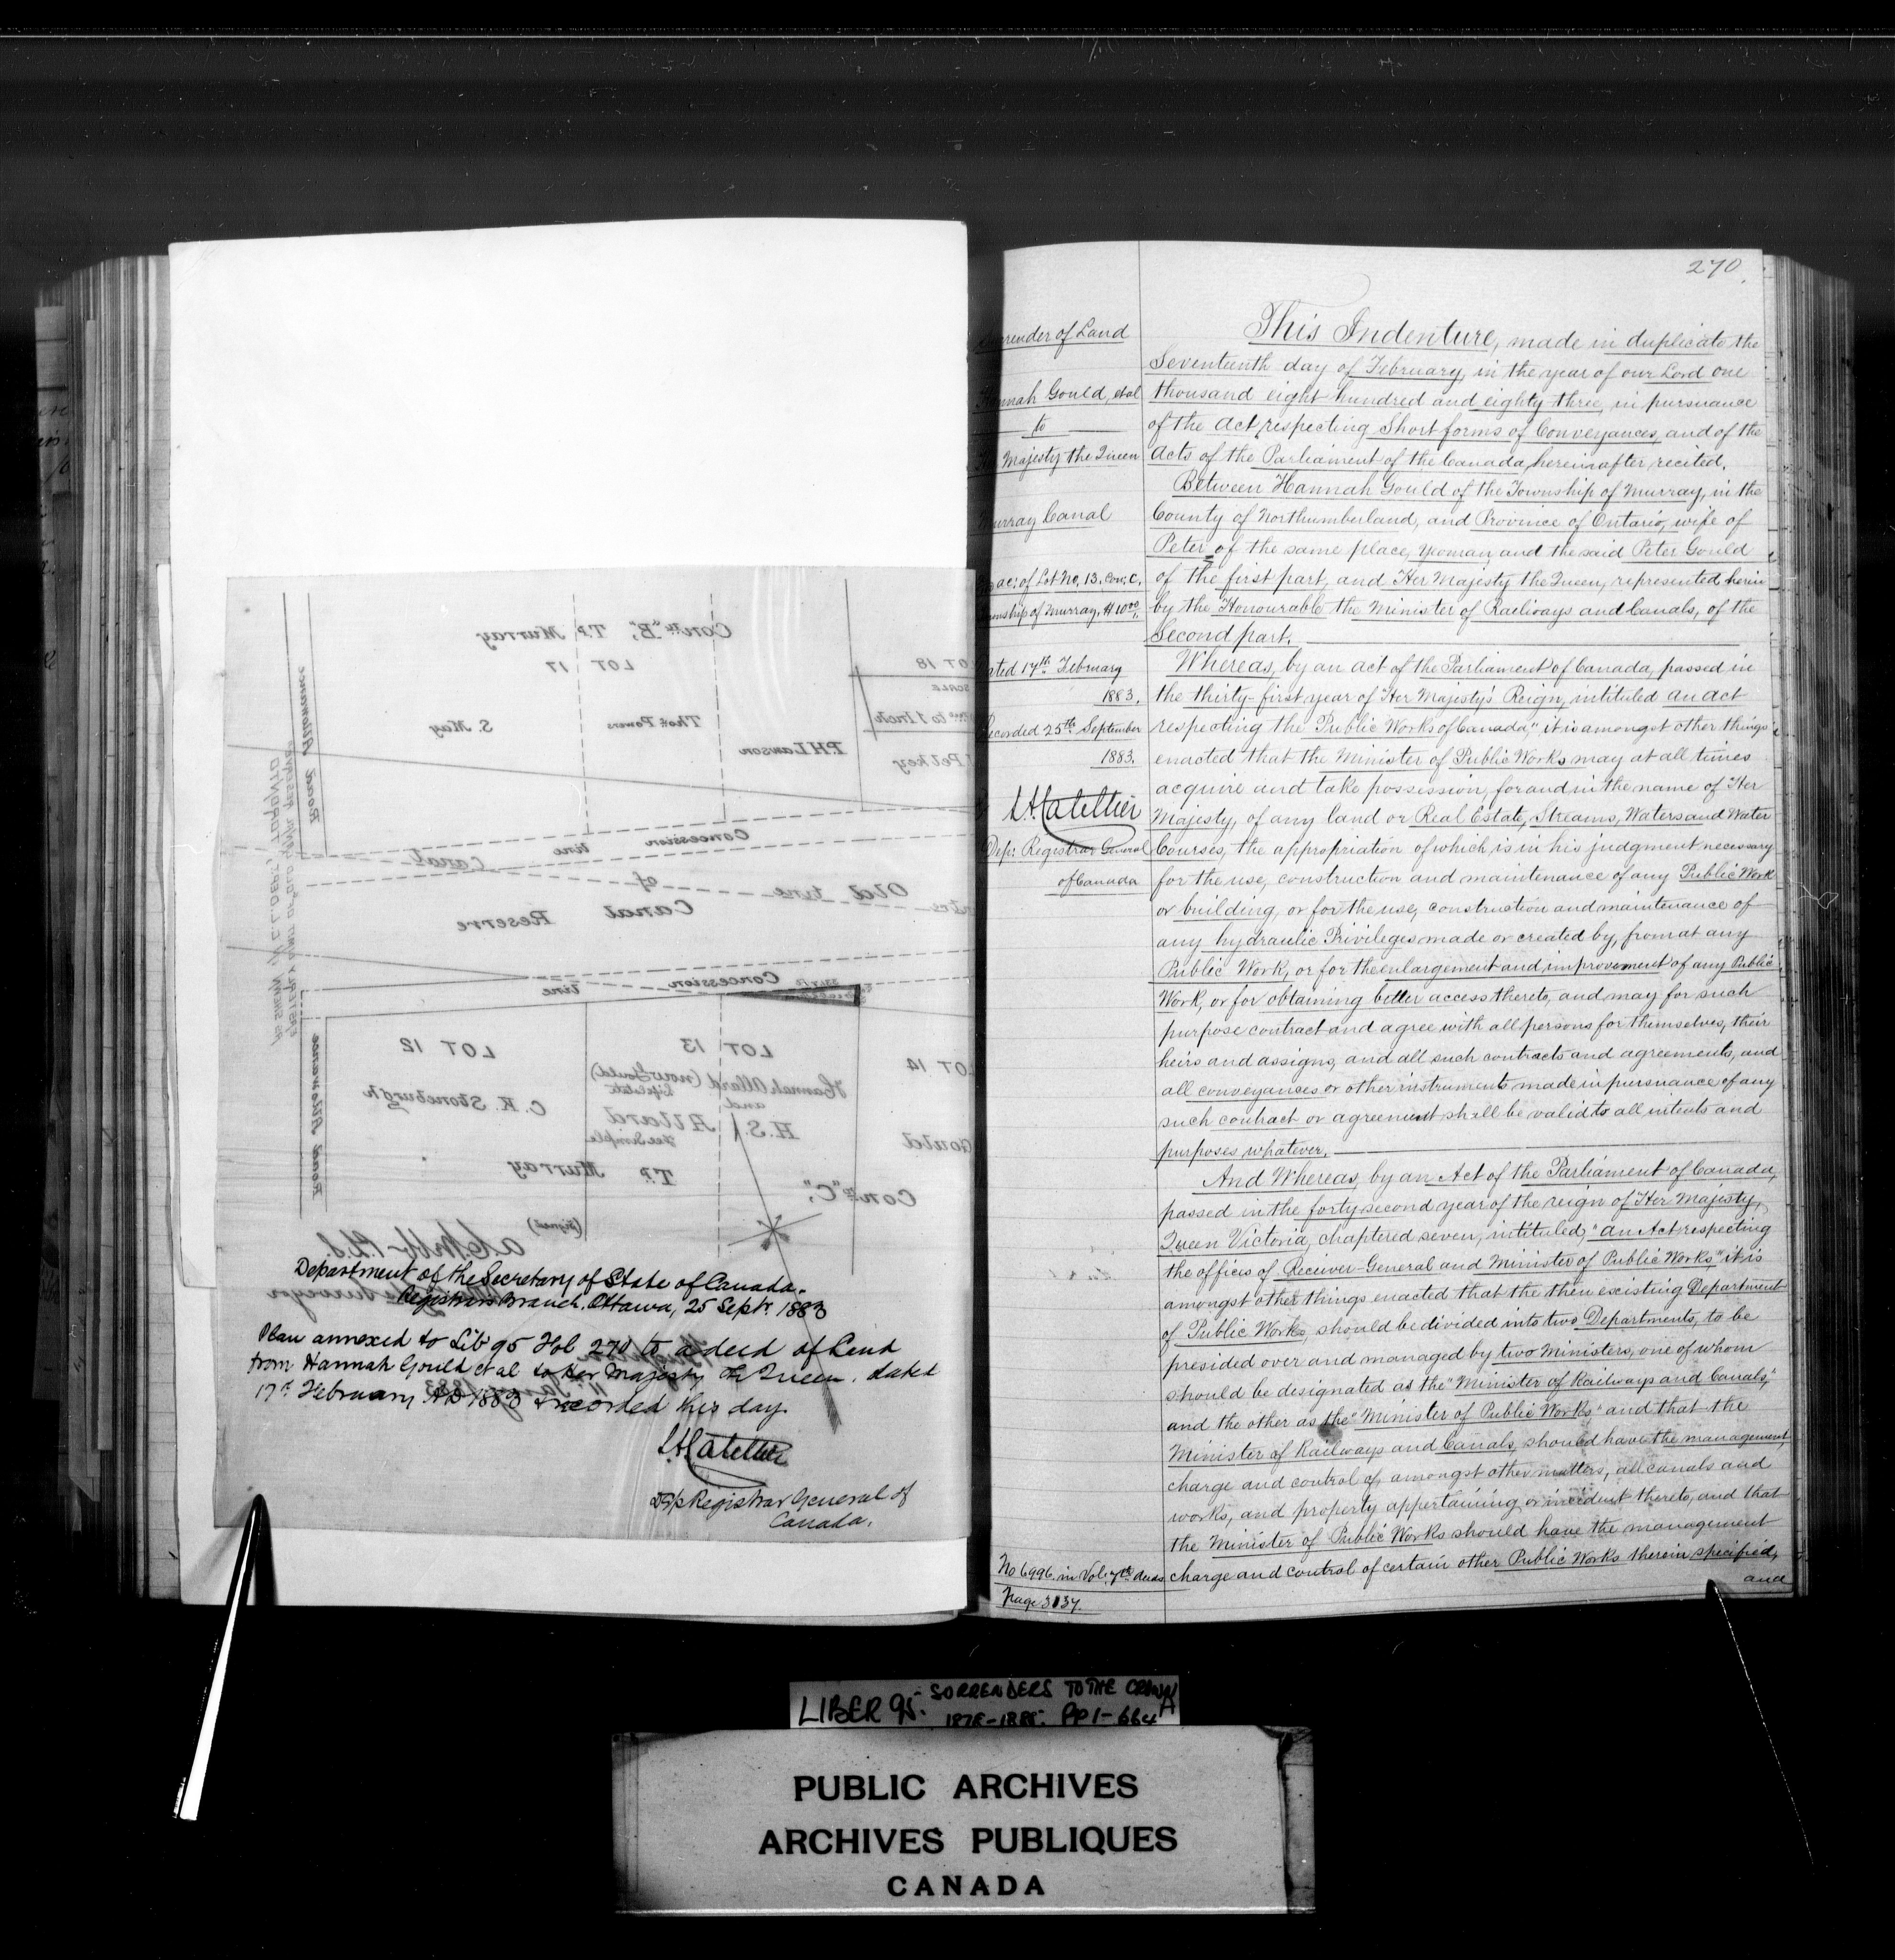 Con:ⁿ "B", T.P. Murray
LOT 18
LOT 17
SCALE
to 1 Inch
Pelkey
P.H. Lawson
Thos. Powers
S. May
Road Allowance
Concession line
Old line of Canal
Canal Reserve
Concession line
LOT 14
LOT 13
LOT 12
Gould
Hannah Allard (now Gould)
Life Estate
and
H.S. Allard
Fee Simple
C. K. Stoneburgh
Road Allowance
Con:ⁿ "C",
T.P. Murray
(Signed)
P.L.S.
Surveyor
Department of the Secretary of State of Canada.
Registrar's Branch. Ottawa, 25 Sept. 1883
Plan annexed to Lib 95 Fol 270 to a deed of Land
from Hannah Gould et al to Her Majesty the Queen. dated
17th February AD 1883 recorded this day.
L.A. Catellier
Dep Registrar General of
Canada.
270.
Surrender of Land
Hannah Gould, et al
to
Her Majesty the Queen
Murray Canal
ac: of Lot No. 13. Con: C.
Township of Murray. $10.00
Dated 17th February
1883.
Recorded 25th September
1883.
L.A. Catellier
Dep: Registrar General
of Canada
No 6996. in Vol: 7th deeds
Page 3137.
This Indenture, made in duplicate the
Seventeenth day of February, in the year of our Lord one
thousand eight hundred and eighty three, in pursuance
of the Act respecting Short forms of Conveyances, and of the
Acts of the Parliament of the Canada, hereinafter recited.
Between Hannah Gould of the Township of Murray, in the
County of Northumberland, and Province of Ontario, wife of
Peter of the same place, Yeoman, and the said Peter Gould
of the first part, and Her Majesty the Queen, represented herein
by the Honourable the Minister of Railways and Canals, of the
Second part.
Whereas, by an act of the Parliament of Canada, passed in
the thirty-first year of Her Majesty's Reign, intituled "An Act
respecting the Public Works of Canada," it is amongst other things
enacted that the Minister of Public Works may at all times
acquire and take possession, for and in the name of Her
Majesty, of any land or Real Estate, Streams, Waters and Water
Courses, the appropriation of which is in his judgment necessary
for the use, construction and maintenance of any Public Work
or building, or for the use, construction and maintenance of
any hydraulic Privileges made or created by, from at any
Public Work, or for the enlargement and improvement of any Public
Work, or for obtaining better access thereto, and may for such
purpose contract and agree with all persons for themselves, their
heirs and assigns, and all such contracts and agreements, and
all conveyances or other instruments made in pursuance of any
such contract or agreement shall be valid to all intents and
purposes whatever.
And Whereas, by an Act of the Parliament of Canada,
passed in the forty second year of the reign of Her Majesty,
Queen Victoria, chaptered seven, intituled, "An Act respecting
the offices of Receiver-General and Minister of Public Works" it is
amongst other things enacted that the then existing Department
of Public Works, should be divided into two Departments, to be
presided over and managed by two Ministers, one of whom
should be designated as the "Minister of Railways and Canals,"
and the other as the "Minister of Public Works," and that the
Minister of Railways and Canals, should have the management,
charge and control of, amongst other matters, all canals and
works, and property appertaining or incident thereto, and that
the Minister of Public Works should have the management
charge and control of certain other Public Works therein specified,
and
LIBER 95: SURRENDERS TO THE CROWN
1878-1888: PP 1-664A
PUBLIC ARCHIVES
ARCHIVES PUBLIQUES
CANADA